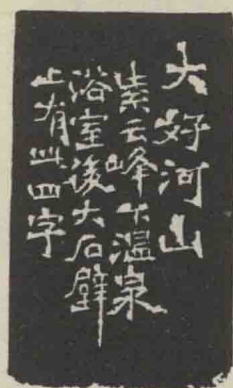 大好河山
紫云峰下温泉
浴室後大石壁
上有此四字